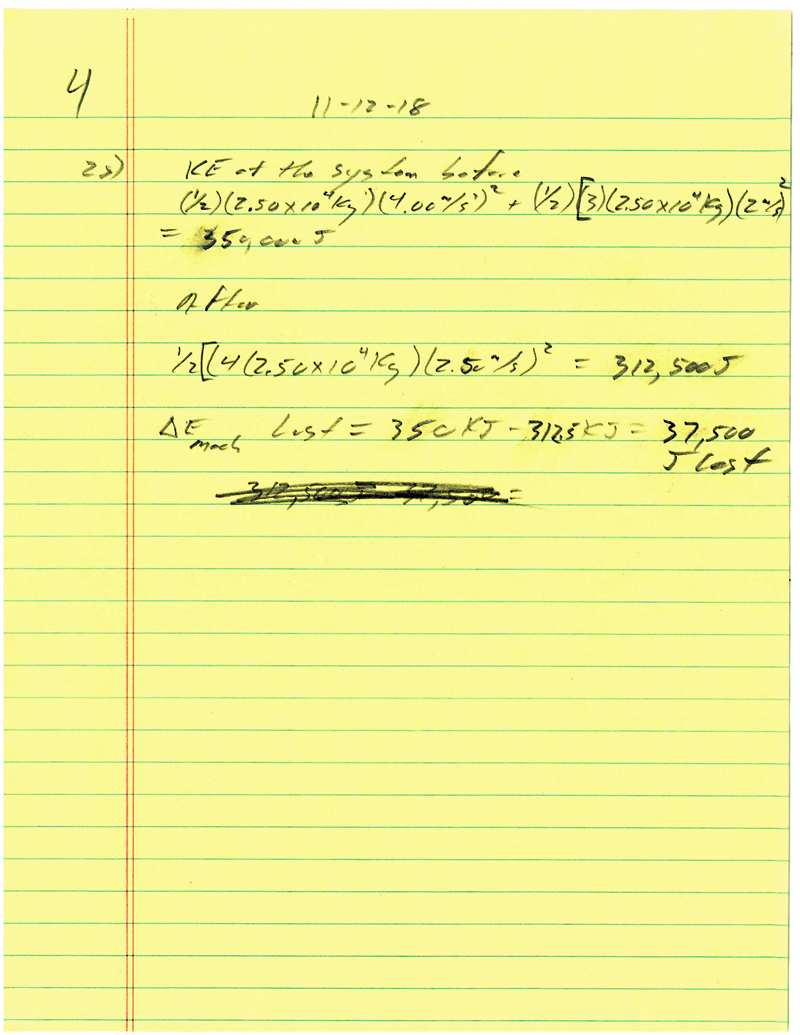 4
11-12-18
25) KE of the system before
(1/2)(2.50x10⁴Kg)(4.00m/s)² + (1/2)[3)(2.50x10⁴Kg)(2m/s)²
= 350,000J
After
1/2[(4(2.50x10⁴Kg)(2.50m/s)² = 312,500J
ΔE mech Lost = 350KJ - 312.5KJ = 37,500
J Lost